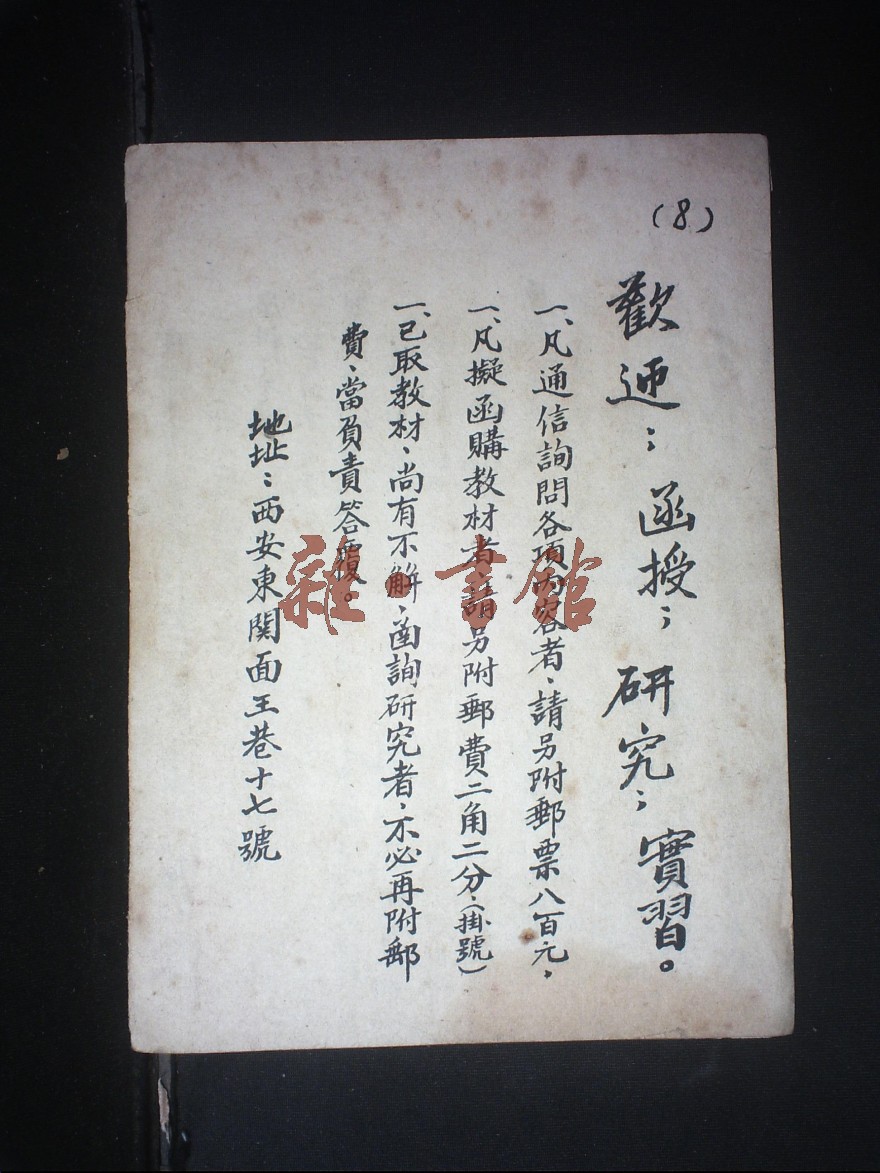 (8)
歡迎；函授；研究；實習。
一、凡通信詢問各項內容者，請另附郵票八百元，
一、凡擬函購教材者，請另附郵費二角二分，（掛號）
一、已取教材，尚有不解，函詢研究者，不必再附郵
費，當負責答覆。
地址：西安東関面王巷十七號
雜·書館